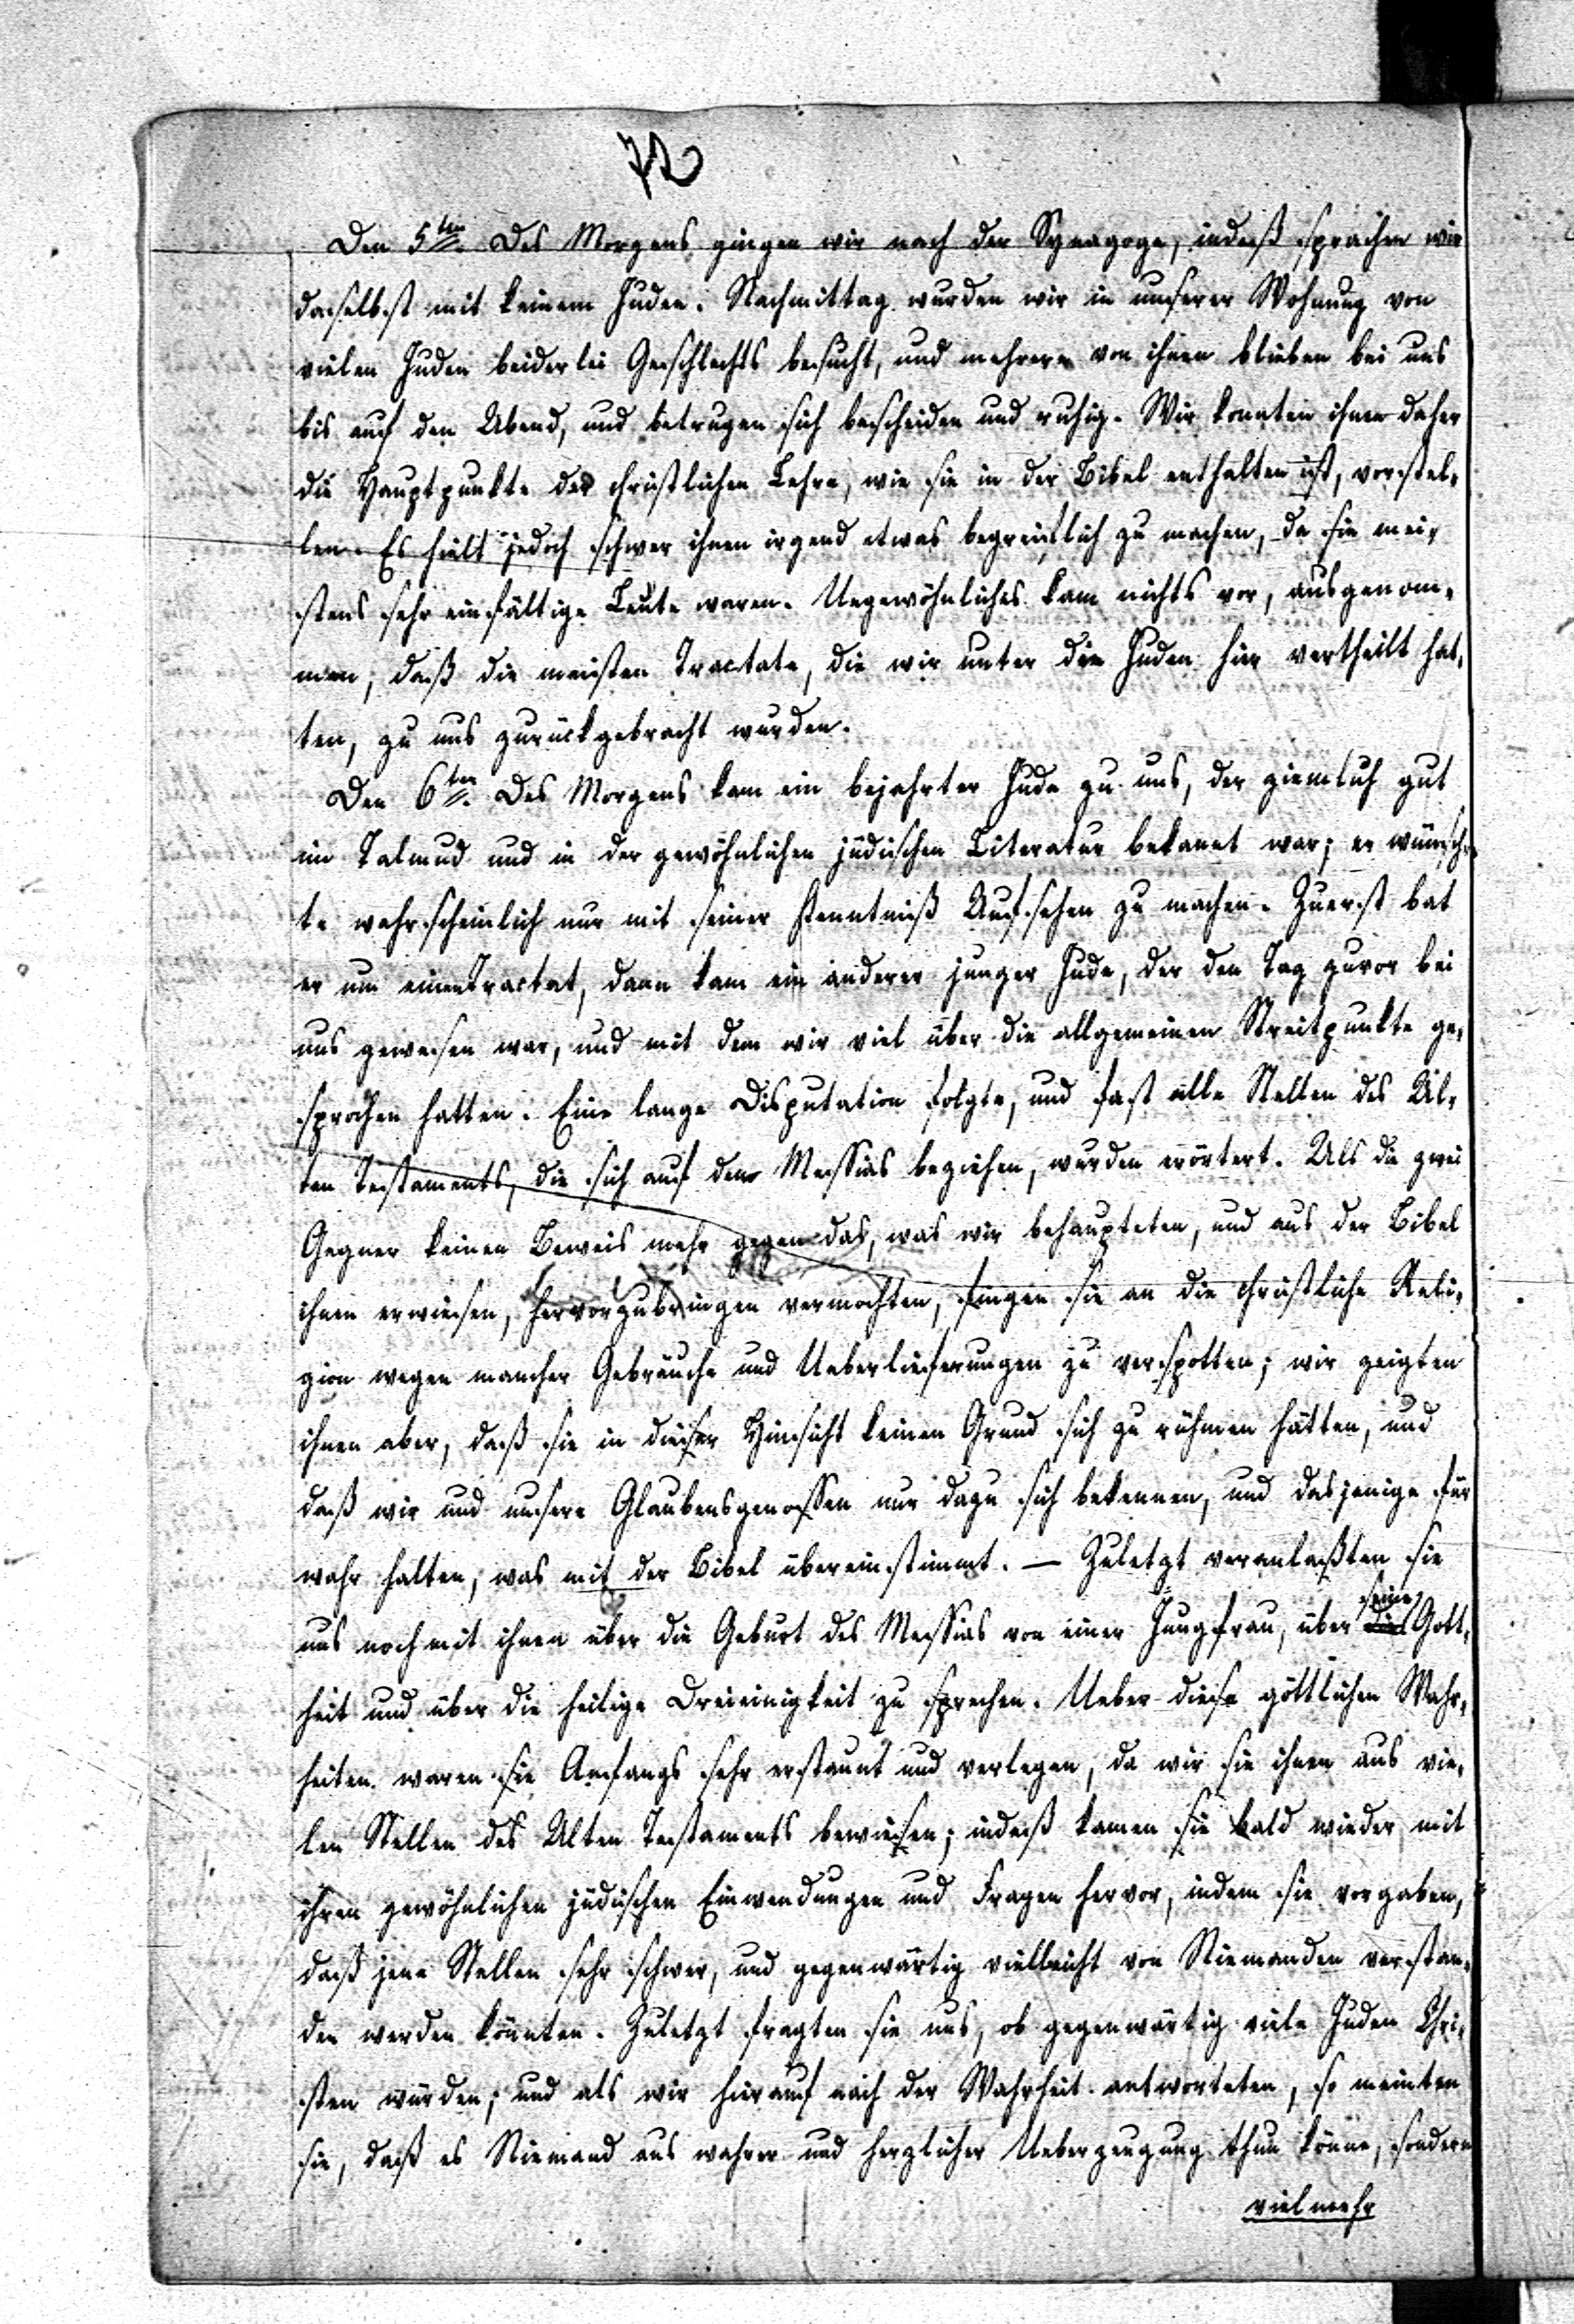 72
Den 5ten Des Morgens gingen wir nach der Synagoge, indeß sprachen wir
daselbst mit keinem Juden. Nachmittag wurden wir in unserer Wohnung von
vielen Juden beiderlei Geschlechts besucht, und mehrere von ihnen blieben bei uns
bis auf den Abend, und betrugen sich bescheiden und ruhig. Wir konnten ihnen daher
die Hauptpunkte der christlichen Lehre, wie sie in der Bibel enthalten ist, vorstel-
len. Es hielt jedoch schwer ihnen irgend etwas begreiflich zu machen, da sie mei-
stens sehr einfältige Leute waren. Ungewöhnliches kam nichts vor, ausgenom-
men, daß die meisten Tractate, die wir unter die Juden hier vertheilt hat-
ten, zu uns zurückgebracht wurden.
Den 6ten Des Morgens kam ein bejahrter Jude zu uns, der ziemlich gut
im Talmud und in der gewöhnlichen jüdischen Literatur bekannt war; er wünsch-
te wahrscheinlich nur mit seiner Kenntniß Aufsehen zu machen. Zuerst bat
er um einen Tractat, dann kam ein anderer junger Jude, der den Tag zuvor bei
uns gewesen war, und mit dem wir viel über die allgemeinen Streitpunkte ge-
sprochen hatten. Eine lange Disputation folgte, und fast alle Stellen des Al-
ten Testaments, die sich auf den Messias beziehen, wurden erörtert. Als die zwei
Gegner keinen Beweis mehr gegen das, was wir behaupteten, und aus der Bibel
ihnen erwiesen, hervorzubringen vermochten, fingen sie an die christliche Reli-
gion wegen mancher Gebräuche und Ueberlieferungen zu verspotten; wir zeigten
ihnen aber, daß sie in dieser Hinsicht keinen Grund sich zu rühmen hätten, und
daß wir und unsere Glaubensgenossen nur dazu sich bekennen, und dasjenige für
wahr halten, was mit der Bibel übereinstimmt. — Zuletzt veranlaßten sie
uns noch mit ihnen über die Geburt des Messias von einer Jungfrau, über seine Gott-
heit und über die heilige Dreieinigkeit zu sprechen. Ueber diese göttlichen Wahr-
heiten waren sie Anfangs sehr erstaunt und verlegen, da wir sie ihnen aus vie-
len Stellen des Alten Testaments bewiesen; indeß kamen sie bald wieder mit
ihren gewöhnlichen jüdischen Einwendungen und Fragen hervor, indem sie vorgaben,
daß jene Stellen sehr schwer, und gegenwärtig vielleicht von Niemanden verstan-
den werden könnten. Zuletzt fragten sie uns, ob gegenwärtig viele Juden Chri-
sten würden; und als wir hierauf nach der Wahrheit antworteten, so meinten
sie, daß es Niemand aus wahrer und herzlicher Ueberzeugung thun könne, sondern
vielmehr